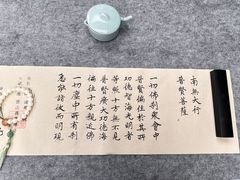 南無大行
普賢菩薩
一切佛刹衆會中
普賢徧住於其所
功德智海光明者
等照十方無不見
普賢廣大功德海
徧往十方親近佛
一切塵中所有刹
悉能詣彼而明現